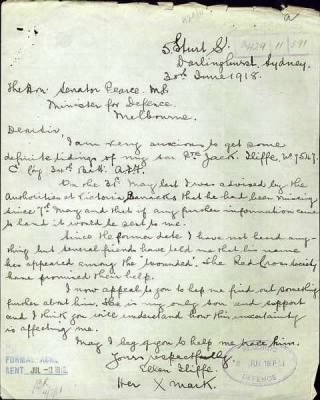 5 Sturt St.
Darlinghurst, Sydney.
30th June 1918.
The Hon. Senator Pearce. M.P.
Minister for Defence.
Melbourne.
Dear Sir,
I am very anxious to get some
definite tidings of my son Pte Jack. Iliffe. No 7547.
C Coy 34th Batt. A.I.F.
On the 31st May last I was advised by the
Authorities at Victoria Barracks that he had been missing
since 7th May and that if any further information came
to hand it would be sent to me.
Since the former date I have not heard any-
thing but several friends have told me that his name
has appeared among the "wounded". The Red Cross Society
have promised their help.
I now appeal to you to help me find out something
further about him. He is my only son and support
and I think you will understand how this uncertainty
is affecting me.
May I beg of you to help me trace him.
Yours respectfully,
Ellen Iliffe.
Her X mark.
FORMAL ACK
SENT JUL 1918
DEFENCE